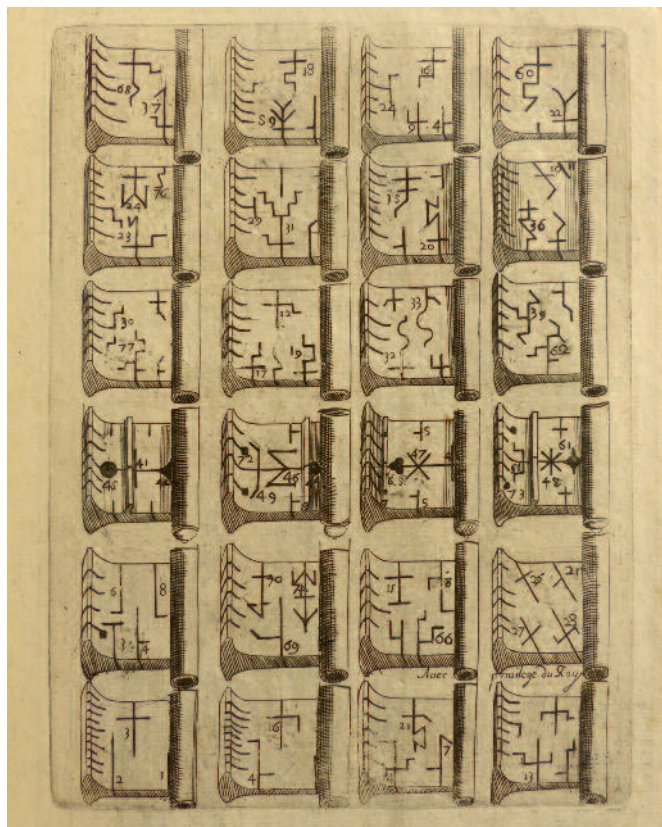 68 37
18 59
16 24 9 4
60 22
76 24 23
29 31
35 20
36
30 77
12 17 19
33 32
39 62
45 41
72 49 46
5 47 63 5
61 48 73
6 8 4
70 69
8 66
26 27 28
Avec privilege du Roy
3 2 1
6 4
21 7
13